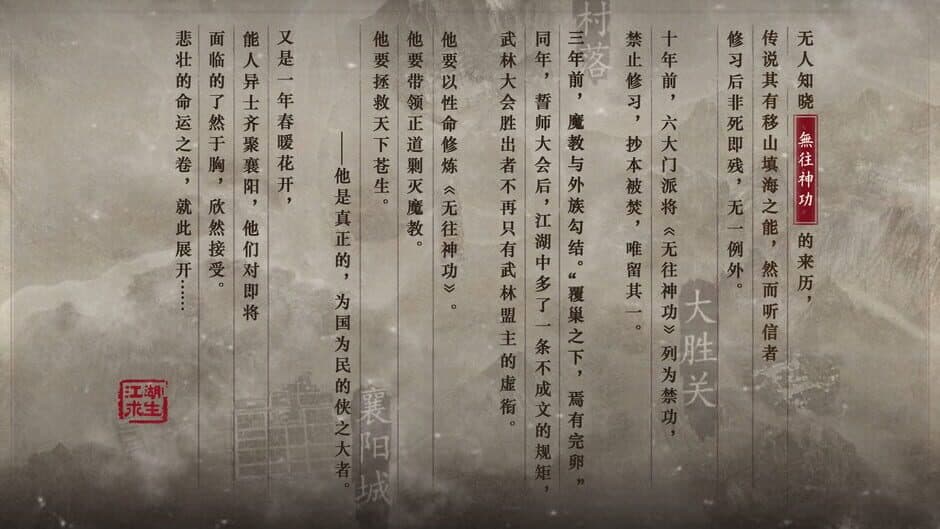 无人知晓無往神功的来历，
传说其有移山填海之能，然而听信者
修习后非死即残，无一例外。
十年前，六大门派将《无往神功》列为禁功，
禁止修习，抄本被焚，唯留其一。
三年前，魔教与外族勾结。“覆巢之下，焉有完卵”
同年，誓师大会后，江湖中多了一条不成文的规矩，
武林大会胜出者不再只有武林盟主的虚衔。
他要以性命修炼《无往神功》。
他要带领正道剿灭魔教。
他要拯救天下苍生。
——他是真正的，为国为民的侠之大者。
又是一年春暖花开，
能人异士齐聚襄阳，他们对即将
面临的了然于胸，欣然接受。
悲壮的命运之卷，就此展开……
村落
大胜关
襄阳城
江湖求生